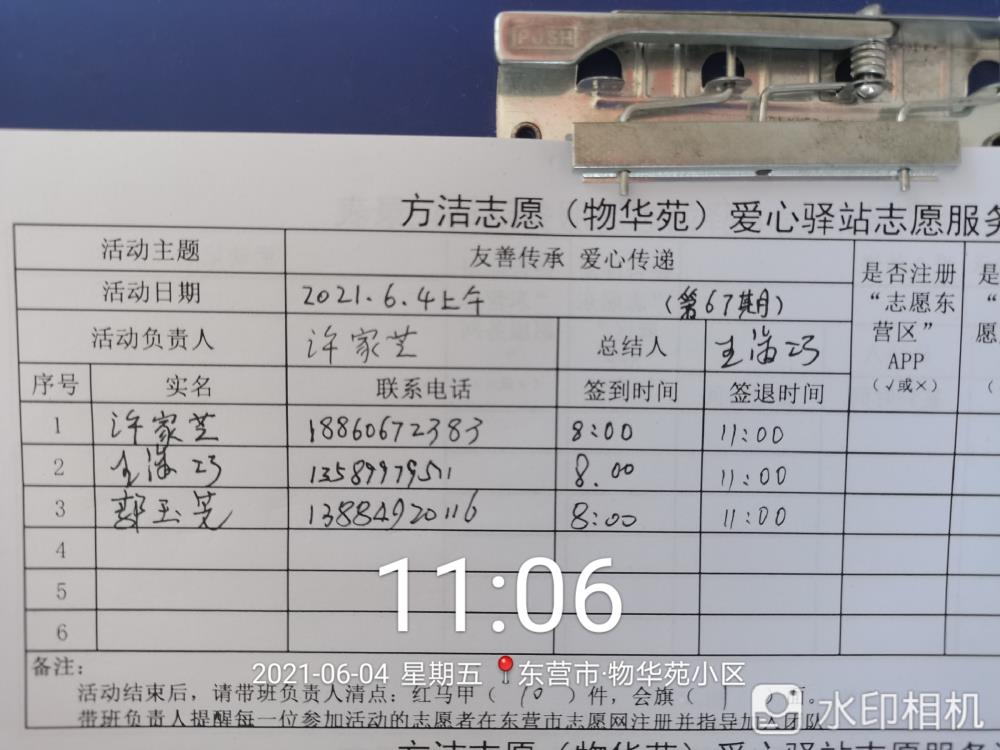 PUSH
方洁志愿（物华苑）爱心驿站志愿服务
活动主题 友善传承 爱心传递
活动日期 2021.6.4上午 （第67期） 是否注册“志愿东营区”APP（√或×） 是“ 愿
活动负责人 许家芝 总结人 王海巧
序号 实名 联系电话 签到时间 签退时间
1 许家芝 18860672383 8:00 11:00
2 王海巧 13589979511 8.00 11:00
3 郭玉 13884920116 8:00 11:00
4
5
6
11:06
备注：
2021-06-04 星期五 东营市·物华苑小区
活动结束后，请带班负责人清点：红马甲（10）件，会旗（1）面。
带班负责人提醒每一位参加活动的志愿者在东营市志愿网注册并指导加入团队
水印相机
方洁志愿（物华苑）爱心驿站志愿服务